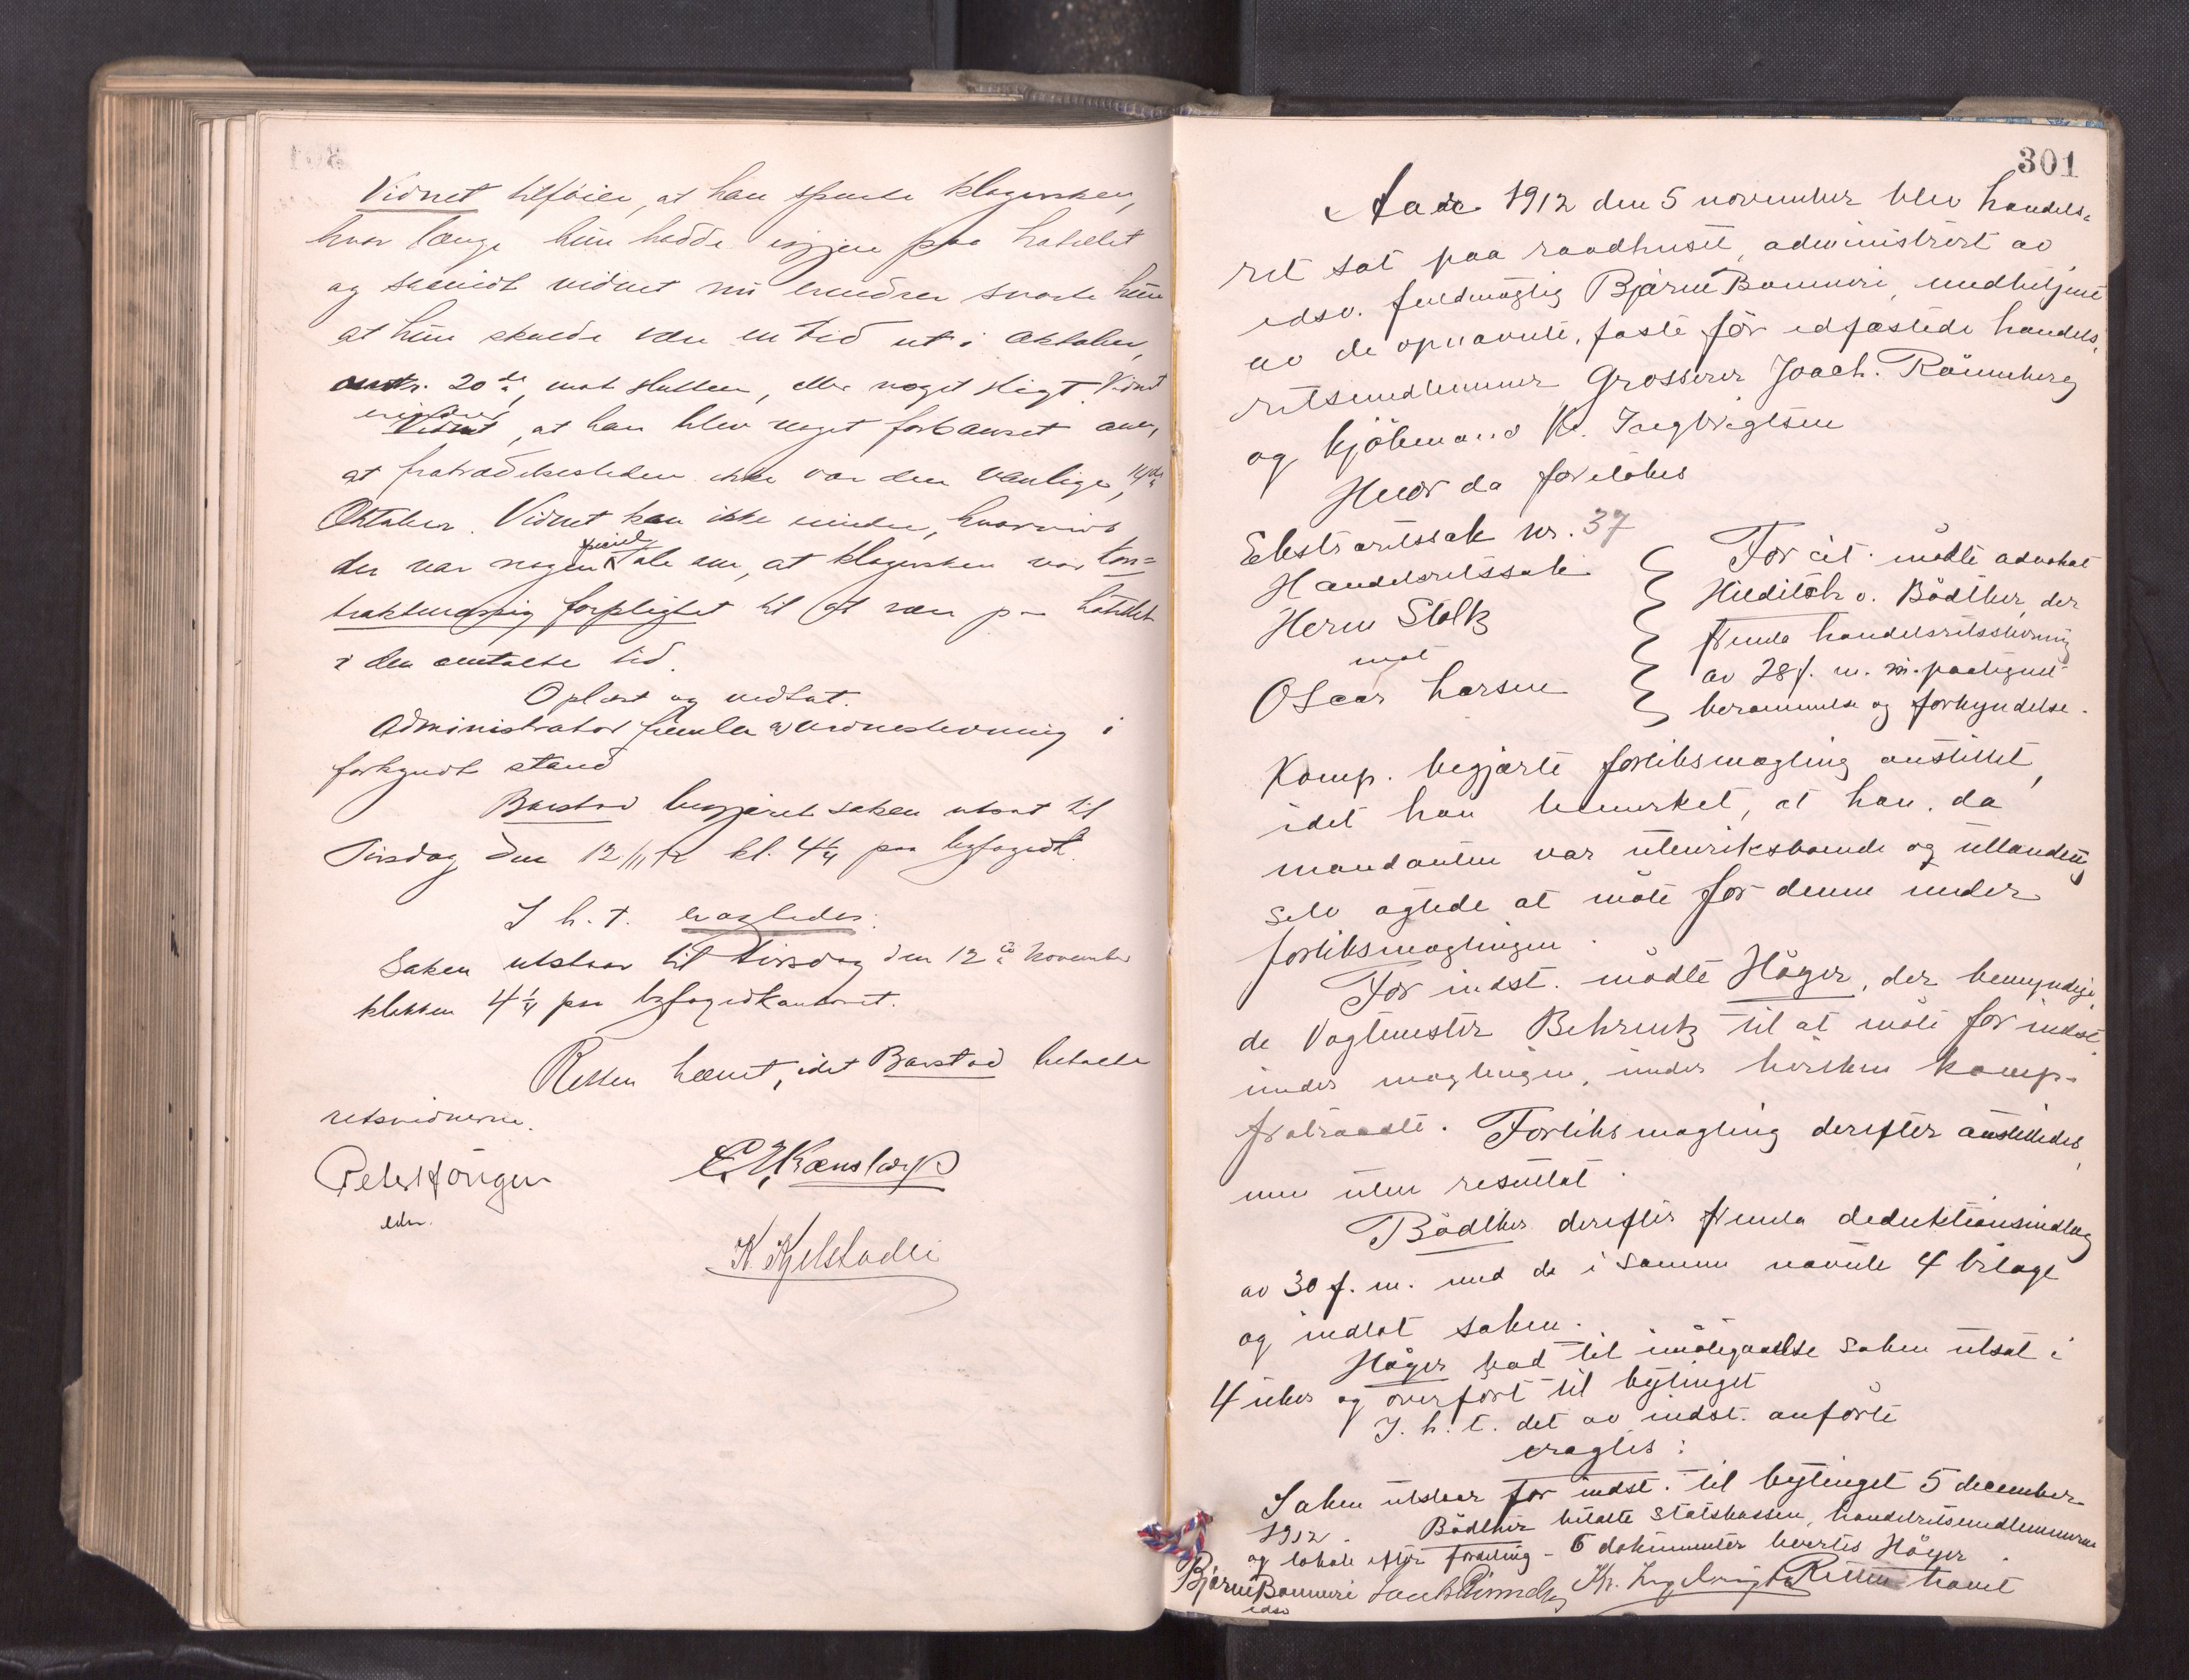 Vidnet tilføier, at han spurte klagersken,
hvor længe hun hadde igjen paa hotellet
og saavidt vidnet nu erindrer svarte hun
at hun skulde være en tid ut i oktober,
20de, mot slutten, eller noget sligt. Vidnet
erindrer, at han blev noget forbauset over,
at fratrædelsestiden ikke var den vanlige, 14de
Oktober. Vidnet kan ikke erindre, hvorvidt
der var nogen speciel tale om, at klagersken var kon=
traktmæssig forpligtet til at være paa hotellet
i den omtalte tid.
Oplæst og vedtat.
Administrator fremla vidnestevning i
forkyndt stand
Barstad begjæret saken utsat til
Tirsdag den 12/11 12 kl. 4 1/4 paa byfogdk.
I h. t. eragtedes:
Saken utstaar til tirsdag den 12de November
klokken 4 1/4 paa byfogedkontoret.
Retten hævet, idet Barstad betalte
retsvidnerne.
edsv.
K. Kjelstadli
301
Aar 1912 den 5 november blev handels-
ret sat paa raadhuset, administrert av
edsv. fuldmægtig Bjarne Bonnevi, medbetjent
av de opnævnte, faste før edfæstede handels-
retsmedlemmer Grosserer Joach. Rønneberg
og kjøbmand K. Ingbrigtsen
Hvor da foretokes
Ekstraretssak nr. 37
Handelsretssak
Herm Stoltz
mot
Oscar Larsen
For cit. møtte advokat
Hilditch v. Bødtker, der
fremla handelsretsstevning
av 28 f. m. m. paategnet
berammelse og forkyndelse.
Komp. begjærte forliksmægling anstillet,
idet han bemerket, at han, da
mandanten var utenriksboende og utlænding
selv agtede at møte for denne under
forliksmæglingen.
For indst. mødte Høyer, der bemyndige-
de Vagtmester Behrentz til at møte for indst.
under mæglingen, under hvilken komp.
fratraadte. Forliksmægling derefter anstilledes
men uten resultat.
Bødtker derefter fremla deduktionsindlæg
av 30 f. m. med de i samme nævnte 4 bilage
og indlot saken.
Høyer bad til imøtegaaelse saken utsat i
4 uker og overført til bytinget
I. h. t. det av indst. anførte
eragtes:
Saken utstaar for indst. til bytinget 5 december
1912. Bødtker betalte statskassen, handelsretsmedlemmerne
og lokale efter fordeling - 6 dokumenter leveres Høyer.
Retten hævet
Bjarne Bonnevi
edsv